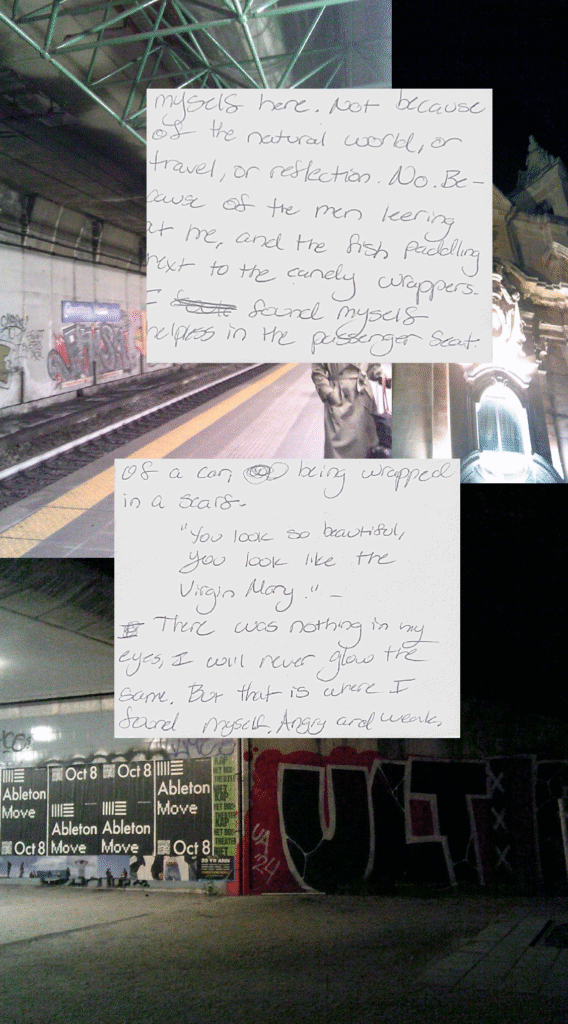 myself here. Not because
of the natural world, or
travel, or reflection. No. Be-
cause of the men leering
at me, and the fish paddling
next to the candy wrappers.
I found myself
helpless in the passenger seat
of a car, being wrapped
in a scarf.
"You look so beautiful,
you look like the
Virgin Mary." –
There was nothing in my
eyes, I will never glow the
same. But that is where I
found myself. Angry and weak.
Oct 8
Oct 8
Ableton
Move
Ableton
Move
Ableton
Move
Ableton
Move
Oct 8
Oct 8
UA
'24
ULT
XXX